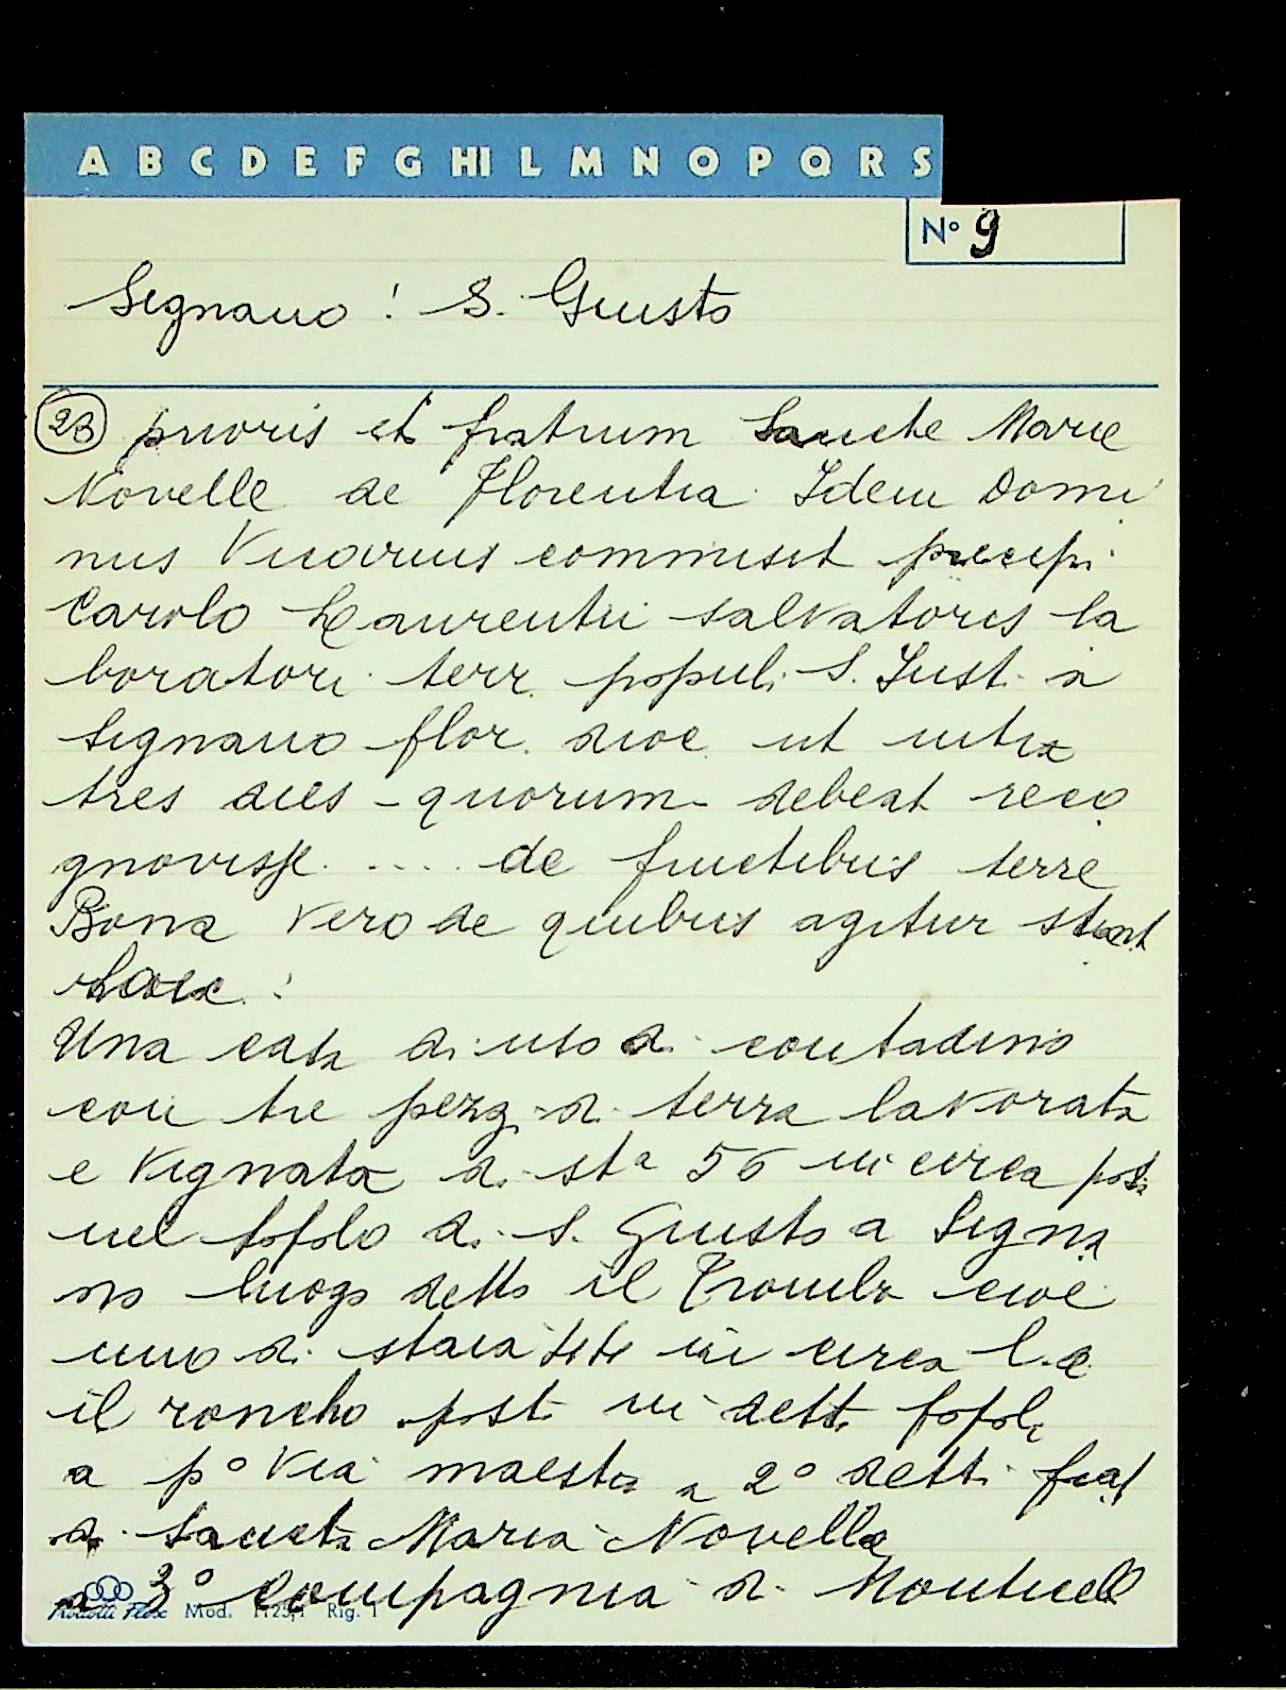 A B C D E F G HI L M N O P Q R S
N° 9
Signano : S. Giusto
2B prioris et fratrum Sancte Marie
Novelle de Florentia. Idem Domi
nus Vicarius commisit precepi
Carolo Laurentii Salvatoris la
boratori terr. populi S. Justi a
Signano flor. dioc. ut infra
tres dies - quorum - debeat reco
gnovisse .... de fructibus terre
Bona vero de quibus agitur sunt
:
Una casa di uso di contadino
con tre pezzi di terra lavorata
e vignata di sta 56 in circa posti
nel popolo di S. Giusto a Signa
no luogo detto il Trombo cioè
uno di staia sette in circa l. d.
il roncho posti in detto popolo
a p° via maestra a 2° detti frati
di Sancta Maria Novella
a 3° Compagnia di Monticell
Mod. 1125/1 Rig. 1